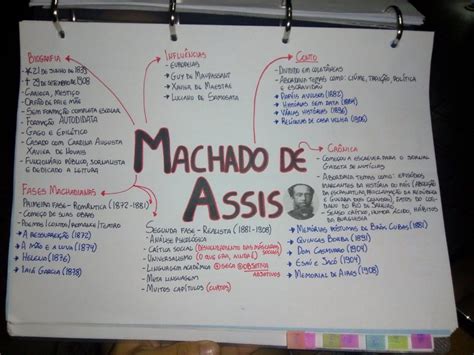 BIOGRAFIA
- * 21 DE JUNHO DE 1839
- † 29 DE SETEMBRO DE 1908
- CARIOCA, MESTIÇO
- ÓRFÃO DE PAI E MÃE
- SEM FORMAÇÃO COMPLETA ESCOLAR
- FORMAÇÃO AUTODIDATA
- GAGO E EPILÉTICO
- CASADO COM CAROLINA AUGUSTA
XAVIER DE NOVAIS
- FUNCIONÁRIO PÚBLICO, JORNALISTA
E DEDICADO A LEITURA
INFLUÊNCIAS
- EUROPEIAS
→ GUY DE MAUPASSANT
→ XAVIER DE MAESTRE
→ LUCIANO DE SAMOSATA
CONTO
- DIVIDIDO EM COLETÂNEAS
- ABORDAVA TEMAS COMO: CIÚME, TRAIÇÃO, POLÍTICA
E ESCRAVIDÃO
→ PAPÉIS AVULSOS (1882)
→ HISTÓRIAS SEM DATA (1884)
→ VÁRIAS HISTÓRIAS (1896)
→ RELÍQUIAS DE CASA VELHA (1906)
MACHADO DE
ASSIS
CRÔNICA
- COMEÇOU A ESCREVER PARA O JORNAL
GAZETA DE NOTÍCIAS
- ABORDAVA TEMAS COMO: EPISÓDIOS
MARCANTES DA HISTÓRIA DO PAÍS (ABOLIÇÃO
DA ESCRAVATURA, PROCLAMAÇÃO DA REPÚBLICA,
GUERRA DOS CANUDOS) E FATOS DO COTIDIANO
DO RIO DE JANEIRO.
- SENSO CRÍTICO, HUMOR ÁCIDO, HÁBITOS DA
BURGUESIA
FASES MACHADIANAS
PRIMEIRA FASE - ROMÂNTICA (1872-1881)
- COMEÇO DE SUAS OBRAS
→ A RESSUREIÇÃO (1872)
→ A MÃO E A LUVA (1874)
→ HELENA (1876)
→ IAIÁ GARCIA (1878)
SEGUNDA FASE - REALISTA (1881-1908)
- ANÁLISE PSICOLÓGICA
- CRÍTICA SOCIAL
- UNIVERSALISMO
- LINGUAGEM ACADÊMICA
- META LINGUAGEM
- MUITOS CAPÍTULOS (CURTOS)
→ MEMÓRIAS PÓSTUMAS DE BRÁS CUBAS (1881)
→ QUINCAS BORBA (1891)
→ DOM CASMURRO (1899)
→ ESAÚ E JACÓ (1904)
→ MEMORIAL DE AIRES (1908)